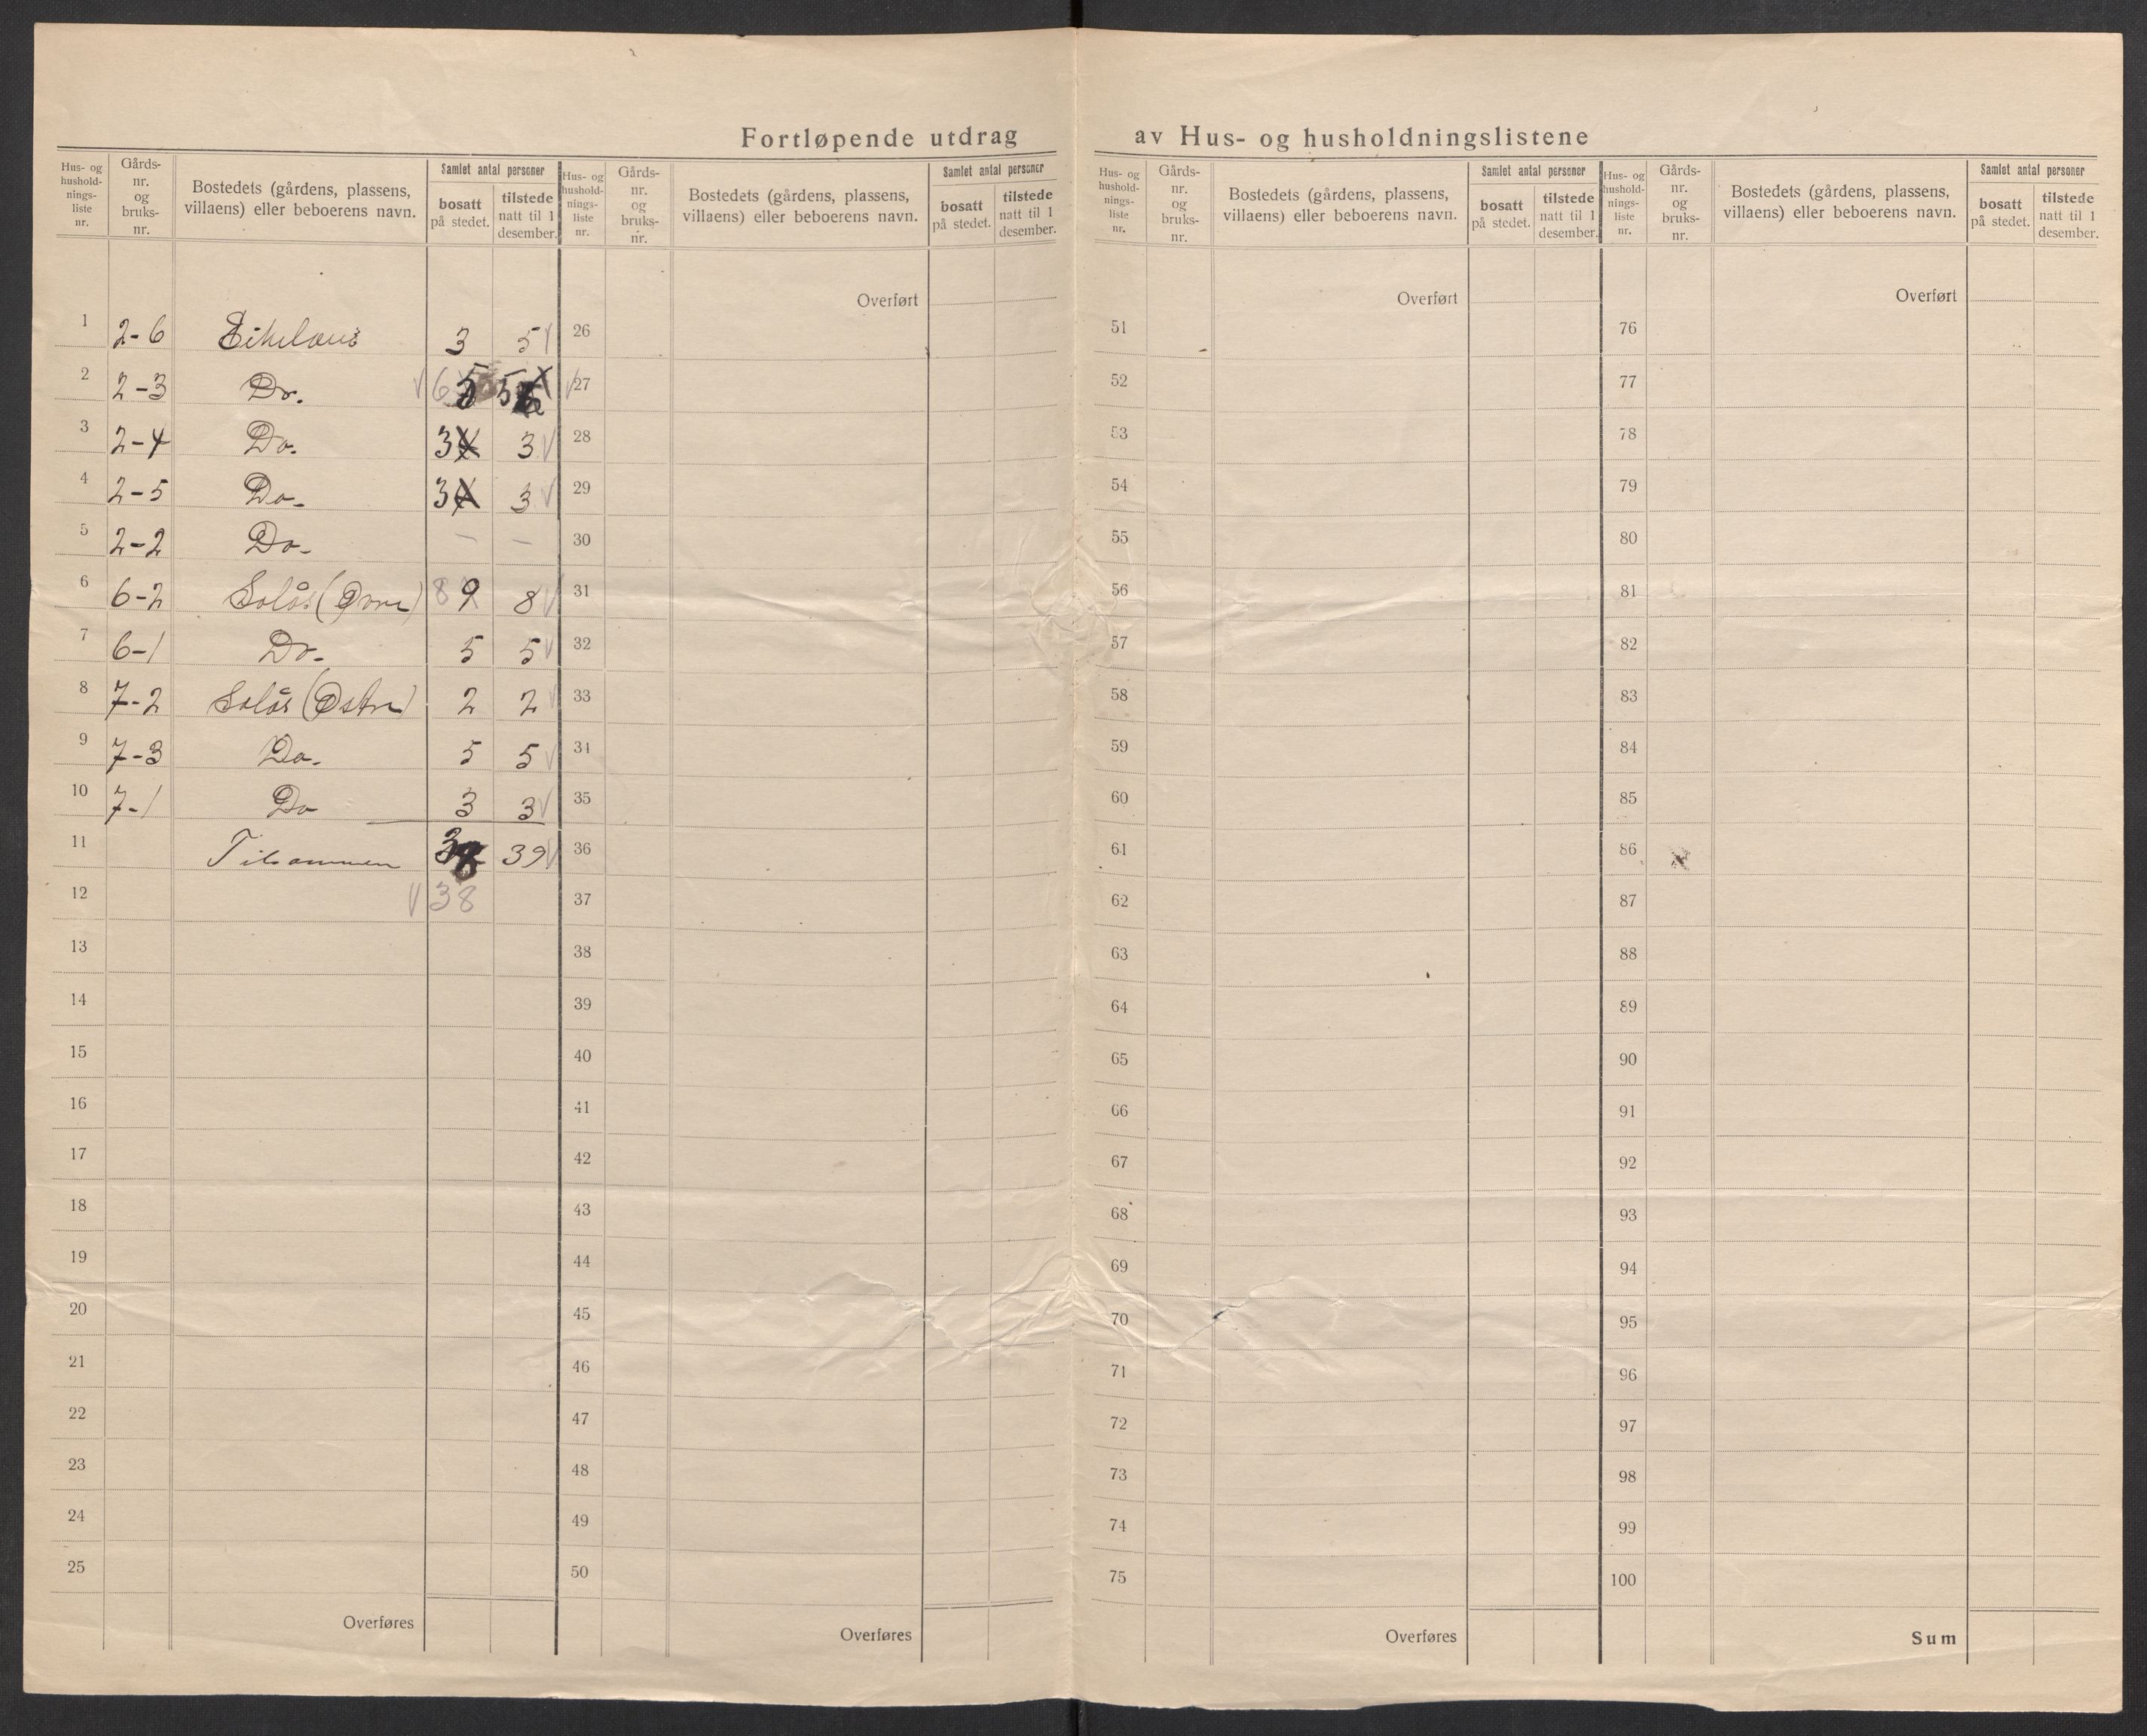 Fortløpende utdrag av Hus- og husholdningslistene
Hus- og hushold- nings- liste nr. | Gårds- nr. og bruks- nr. | Bostedets (gårdens, plassens, villaens) eller beboerens navn. | Samlet antal personer | bosatt på stedet. | tilstede natt til 1 desember.
Hus- og hushold- nings- liste nr. | Gårds- nr. og bruks- nr. | Bostedets (gårdens, plassens, villaens) eller beboerens navn. | Samlet antal personer | bosatt på stedet. | tilstede natt til 1 desember.
Hus- og hushold- nings- liste nr. | Gårds- nr. og bruks- nr. | Bostedets (gårdens, plassens, villaens) eller beboerens navn. | Samlet antal personer | bosatt på stedet. | tilstede natt til 1 desember.
Hus- og hushold- nings- liste nr. | Gårds- nr. og bruks- nr. | Bostedets (gårdens, plassens, villaens) eller beboerens navn. | Samlet antal personer | bosatt på stedet. | tilstede natt til 1 desember.
Overført Overført Overført
1 2-6 Eikeland 3 5 26 51 76
2 2-3 Do. 6 5 5 27 52 77
3 2-4 Do. 3 3 28 53 78
4 2-5 Do. 3 3 29 54 79
5 2-2 Do. — — 30 55 80
6 6-2 Solås (Øvre) 8 9 8 31 56 81
7 6-1 Do. 5 5 32 57 82
8 7-2 Solås (Østre) 2 2 33 58 83
9 7-3 Do. 5 5 34 59 84
10 7-1 Do 3 3 35 60 85
11 Tilsammen 38 39 36 61 86
12 38 37 62 87
13 38 63 88
14 39 64 89
15 40 65 90
16 41 66 91
17 42 67 92
18 43 68 93
19 44 69 94
20 45 70 95
21 46 71 96
22 47 72 97
23 48 73 98
24 49 74 99
25 50 75 100
Overføres Overføres Overføres Sum